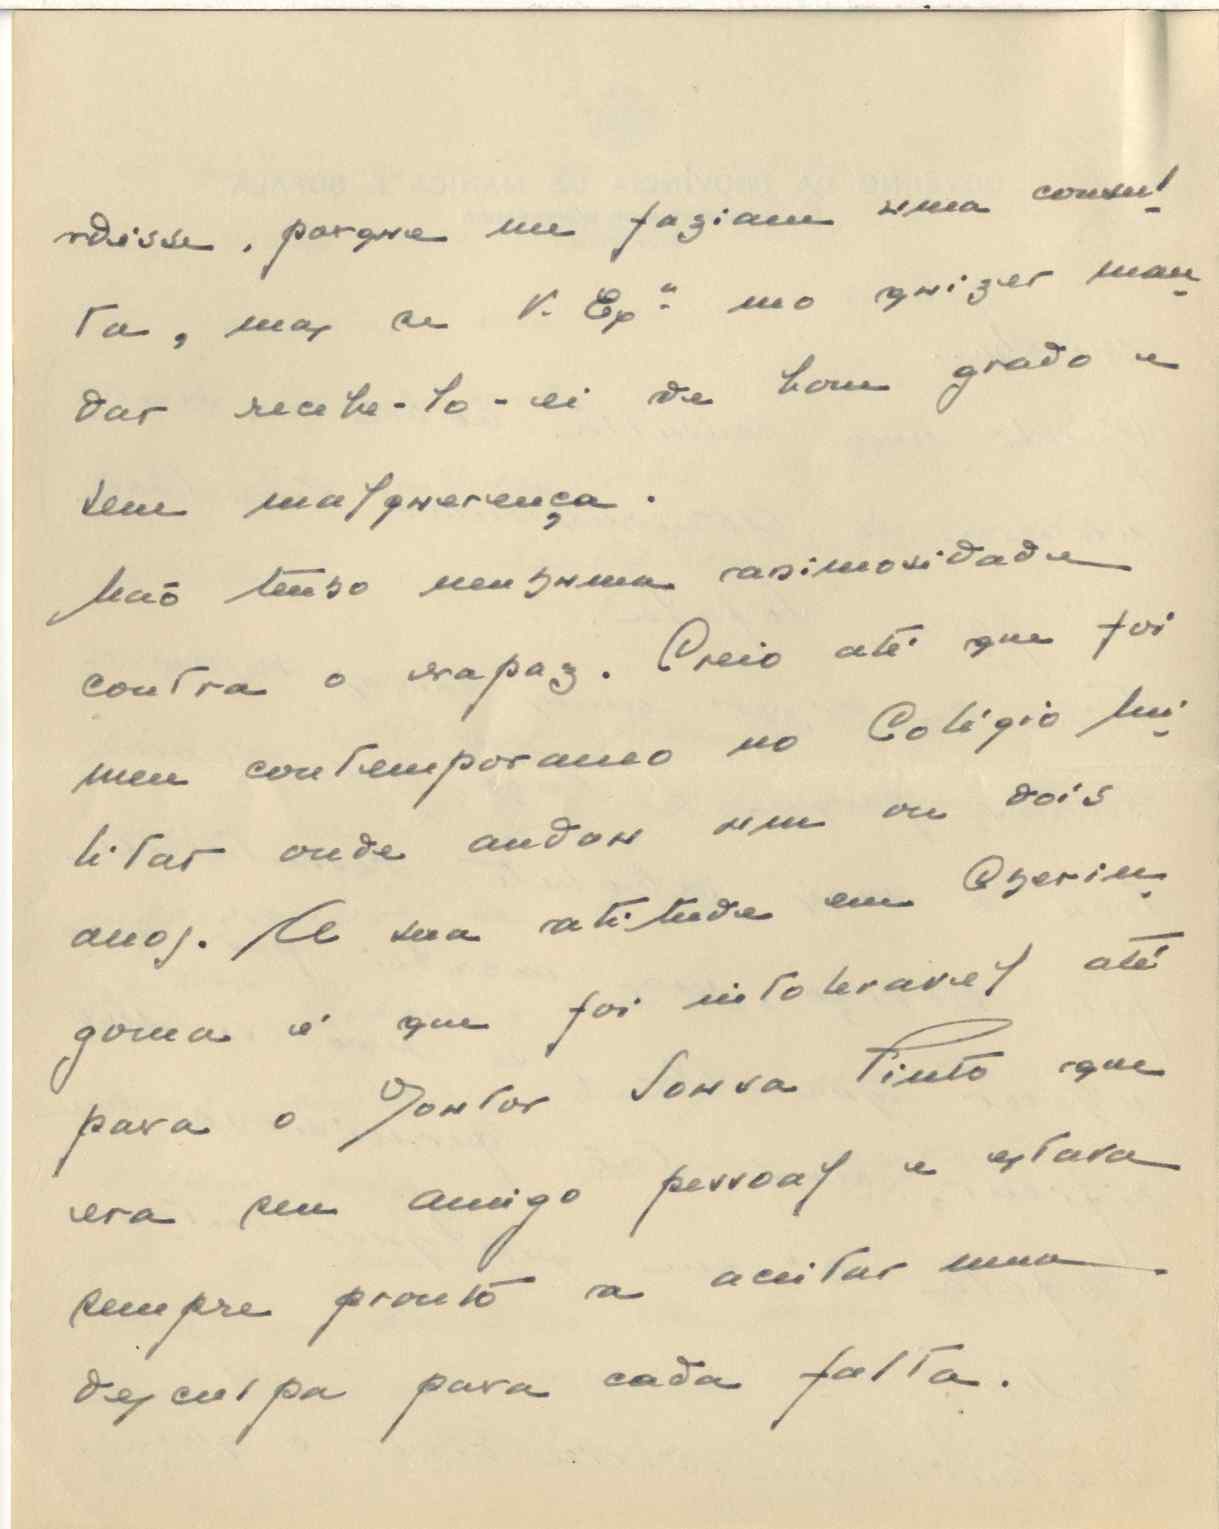 disse, porque me faziam uma consul-
ta, mas se V. Exª mo quizer man-
dar recebe-lo-ei de bom grado e
sem malquerença.
Não tenho nenhuma animosidade
contra o rapaz. Creio até que foi
meu contemporaneo no Colégio Mi-
litar onde andou um ou dois
anos. A sua atitude em Cherin-
goma é que foi intoleravel até
para o Doutor Sousa Pinto que
era seu amigo pessoal e estava
sempre pronto a aceitar uma
desculpa para cada falta.